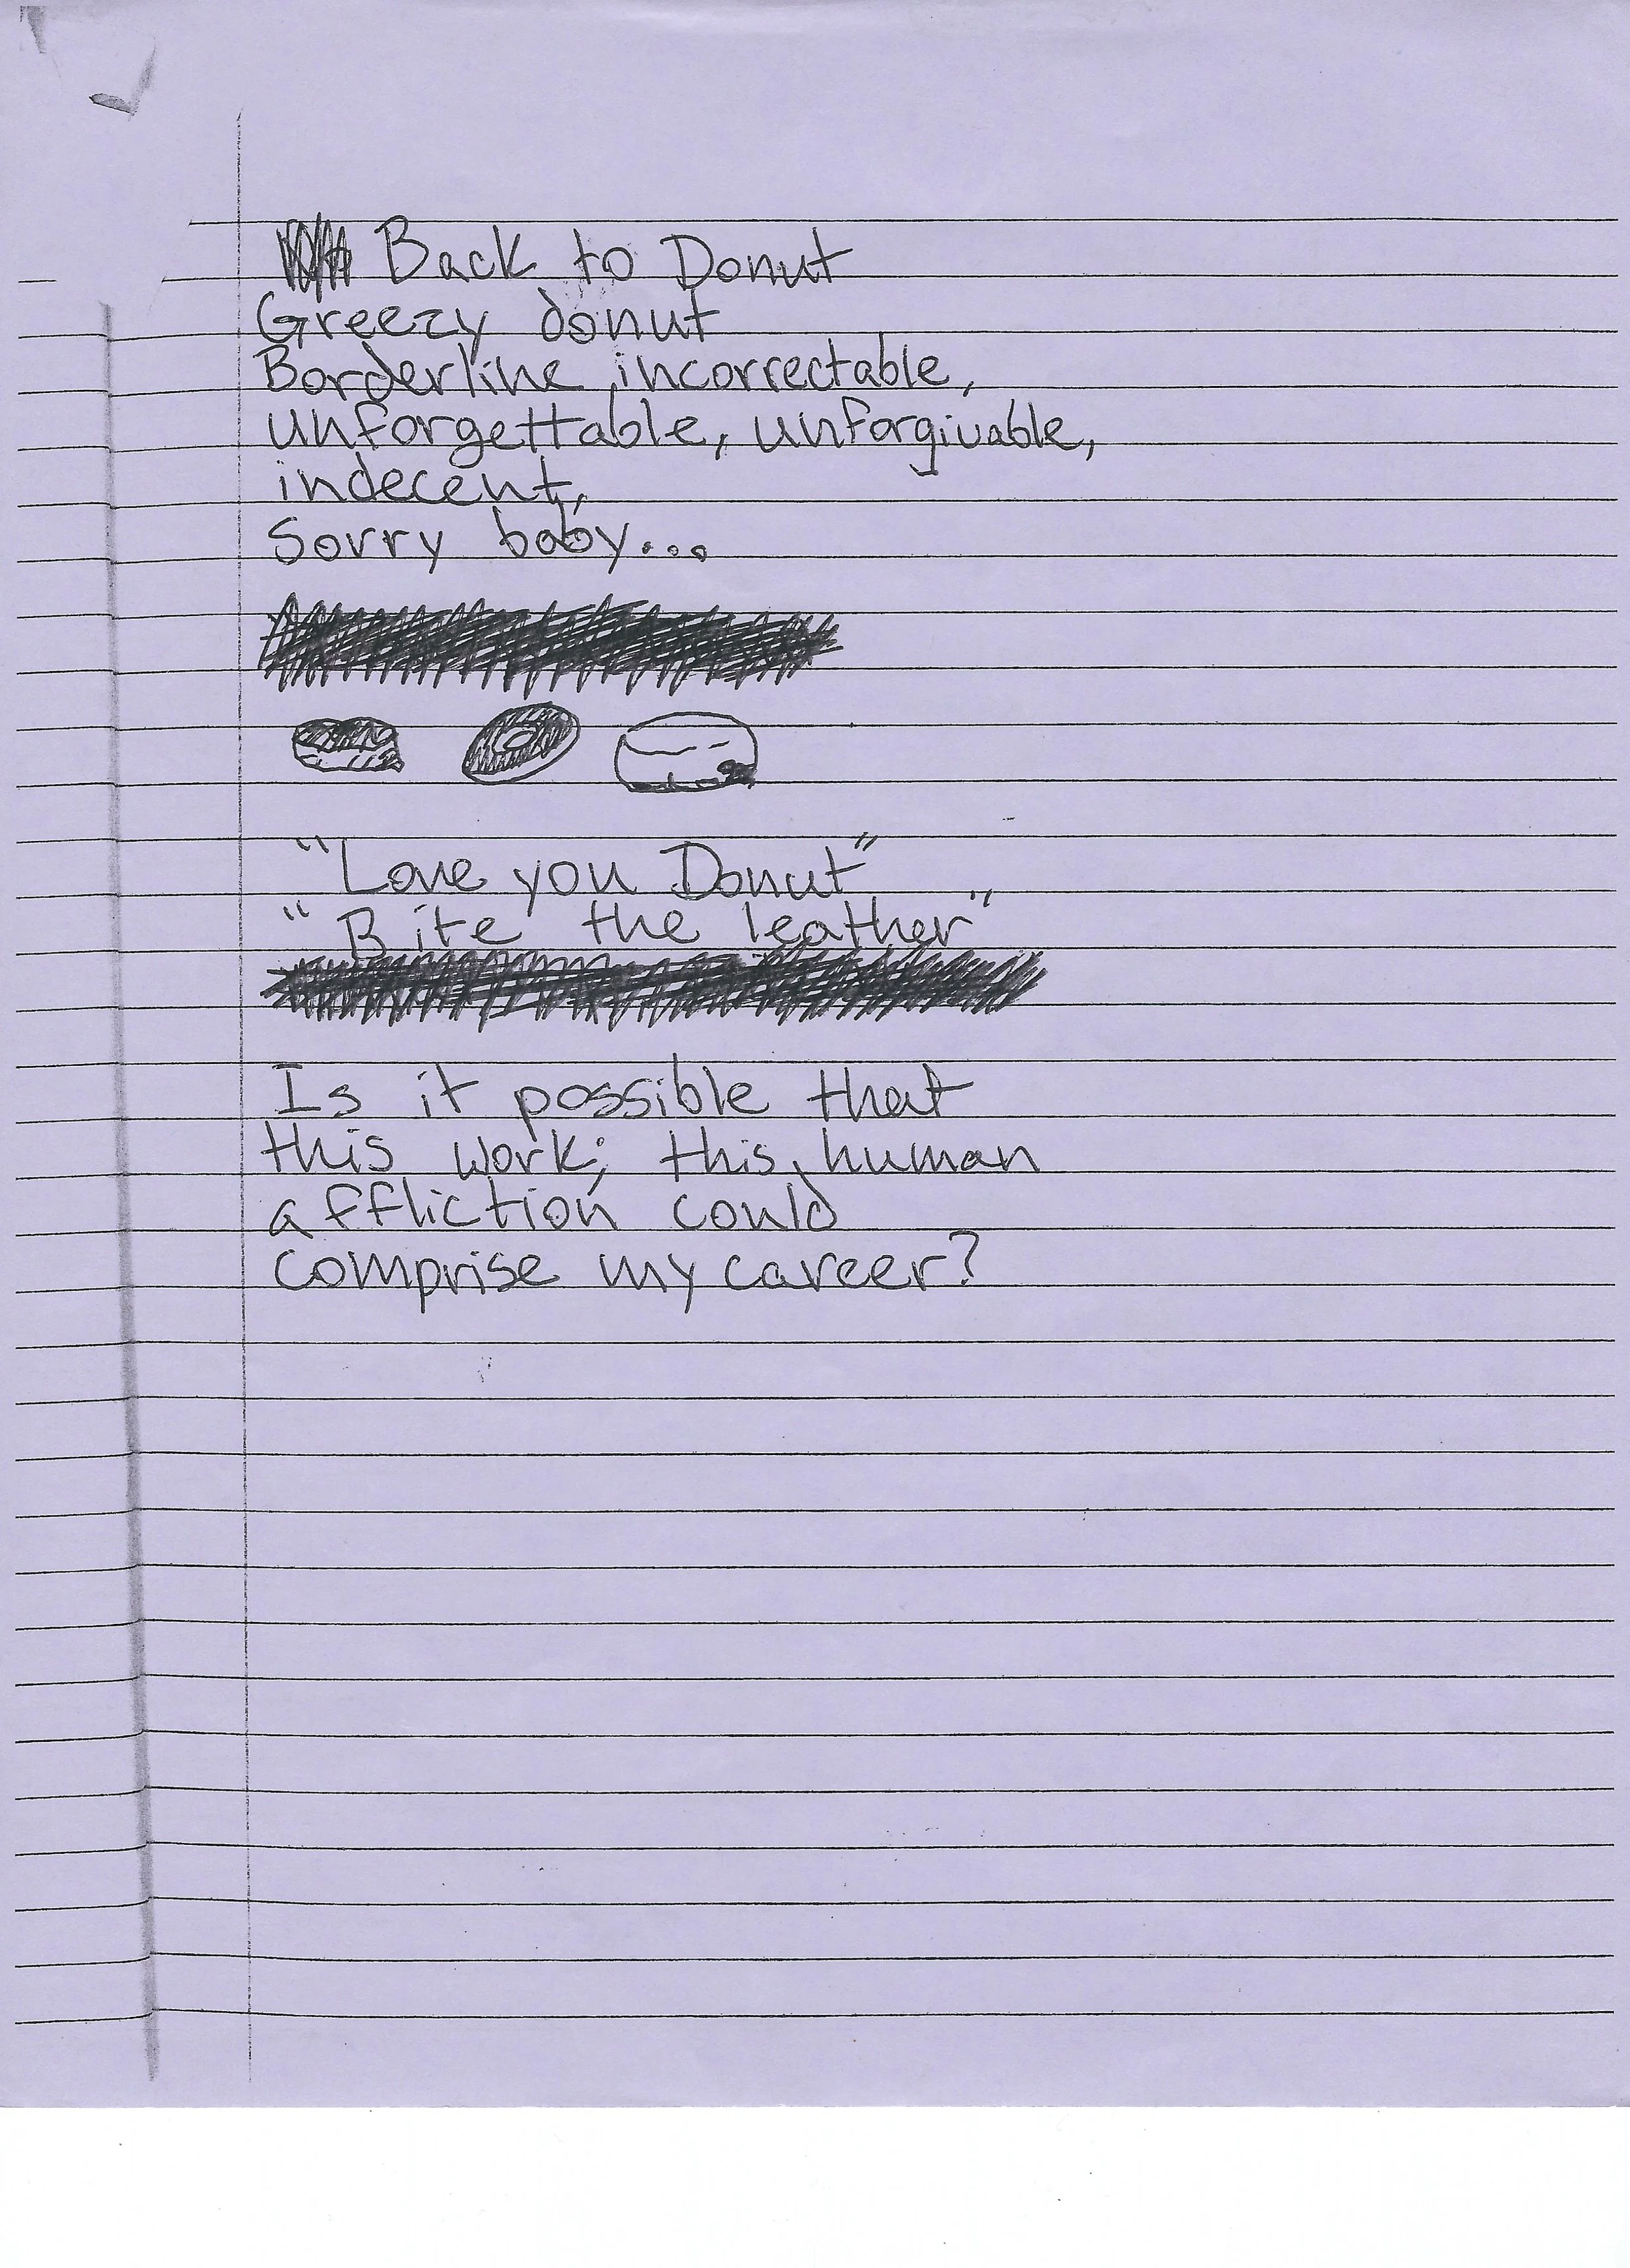 Back to Donut
Greezy donut
Borderline incorrectable,
unforgettable, unforgivable,
indecent,
Sorry baby...
"Love you Donut"
"Bite the leather"
Is it possible that
this work; this human
affliction could
comprise my career?